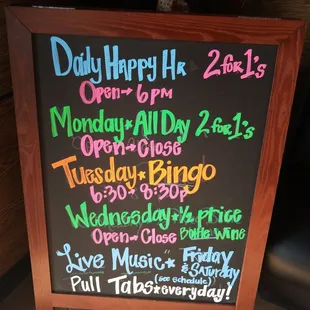 Daily Happy Hr 2 for 1's
Open → 6 pm
Monday ★ All Day 2 for 1's
Open → Close
Tuesday ★ Bingo
6:30 → 8:30p
Wednesday ★ 1/2 price
Open → Close Bottle Wine
Live Music ★ Friday & Saturday
(see schedule)
Pull Tabs ★ everyday!